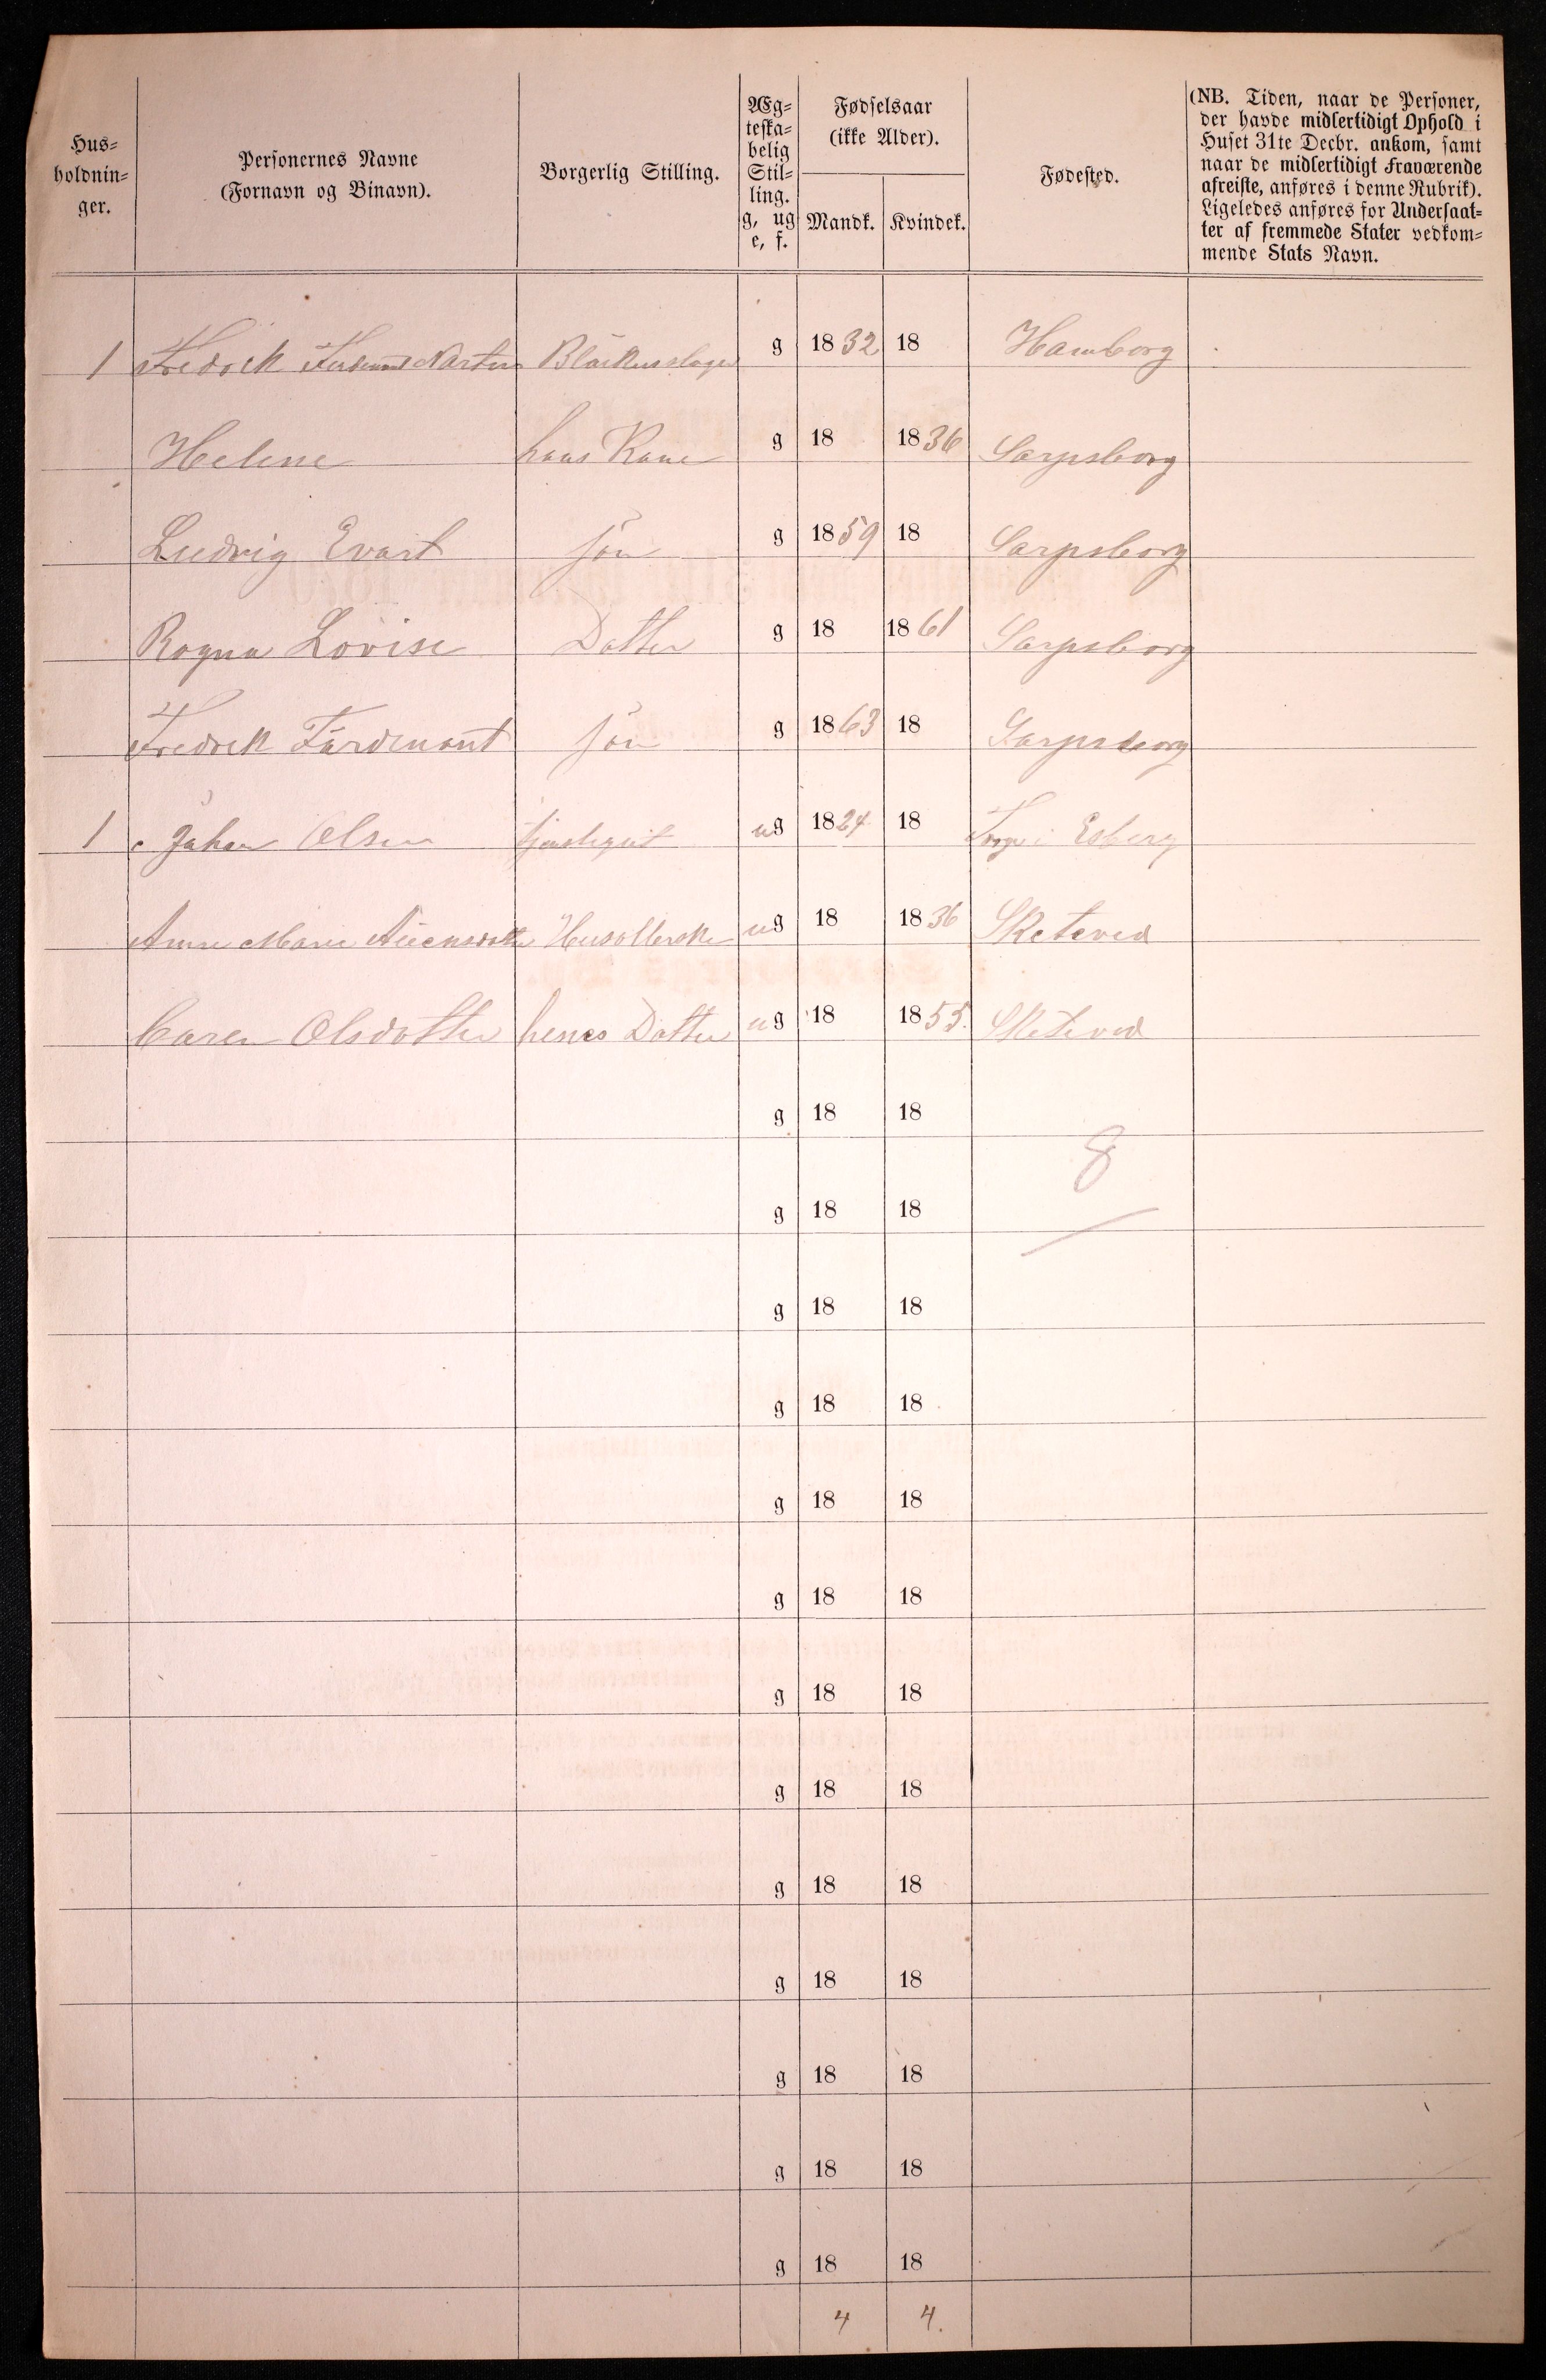 Hus=
holdnin=
ger.
Personernes Navne
(Fornavn og Binavn).
Borgerlig Stilling.
Æg=
teska=
belig
Stil=
ling.
g, ug
e, f.
Fødselsaar
(ikke Alder).
Mandk. Kvindek.
Fødested.
(NB. Tiden, naar de Personer,
der havde midlertidigt Ophold i
Huset 31te Decbr. ankom, samt
naar de midlertidigt Fraværende
afreiste, anføres i denne Rubrik).
Ligeledes anføres for Undersaat=
ter af fremmede Stater vedkom=
mende Stats Navn.
1 Fredrik g 1832 18 Hamborg
Helene hans Kane g 18 1836 Sarpsborg
Ludvig Evart sön g 1859 18 Sarpsborg
Ragna Lovise Datter g 18 1861 Sarpsborg
Fredrik Färdinant sön g 1863 18 Sarpsborg
1 Johan Olsen ug 1824 18
Anne Marie ug 18 1836 Sketeved
Caren Olsdatter henes Datter ug 18 1855 Sketeved
g 18 18
8
g 18 18
g 18 18
g 18 18
g 18 18
g 18 18
g 18 18
g 18 18
g 18 18
g 18 18
g 18 18
g 18 18
g 18 18
4 4.